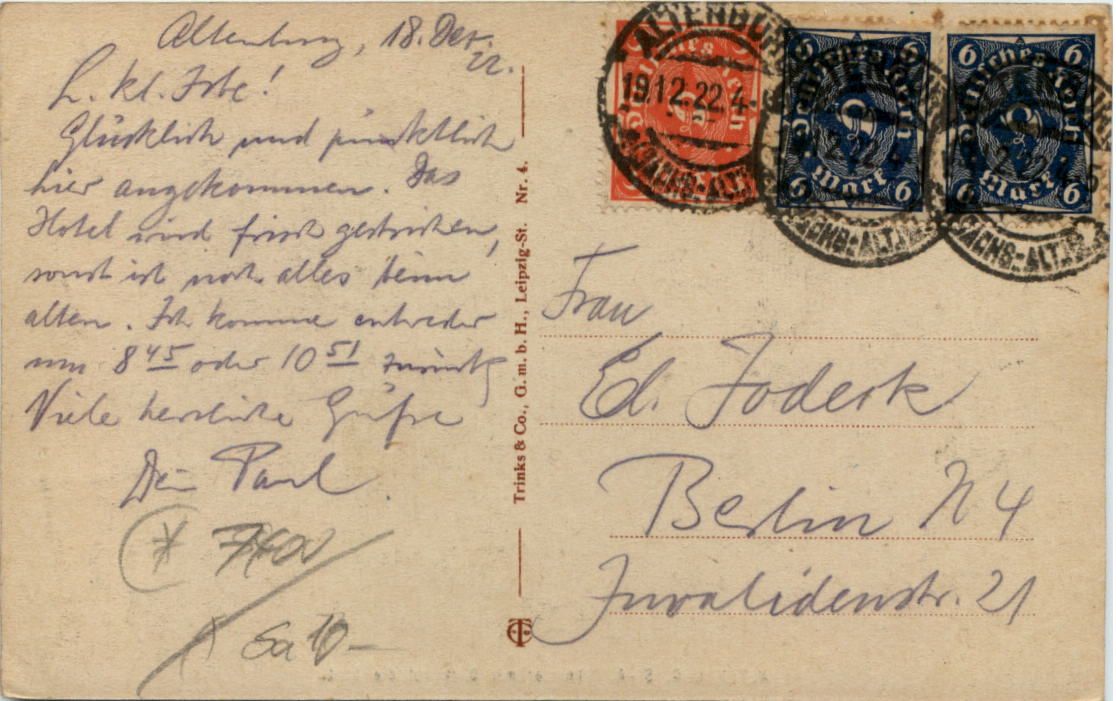 Altenburg, 18. Dez.
22.
L. kl. Ilse!
Glücklich und pünktlich
hier angekommen. Das
Hotel wird frisch gestrichen,
sonst ist noch alles beim
alten. Ich komme entweder
um 8 45 oder 10 51 zurück
Viele herzliche Grüße
Dein Paul.
Sa 10-
Trinks & Co., G. m. b. H., Leipzig-St. Nr. 4.
ALTENBURG
19 12. 22. 4-
SACHS.-ALT.
Deutsches Reich
Deutsches Reich
6 6
Mark
6 6
Deutsches Reich
6 6
Mark
6 6
SACHS.-ALT.
SACHS.-ALT.
Frau
Ed. Joderk
Berlin N 4
Invalidenstr. 21